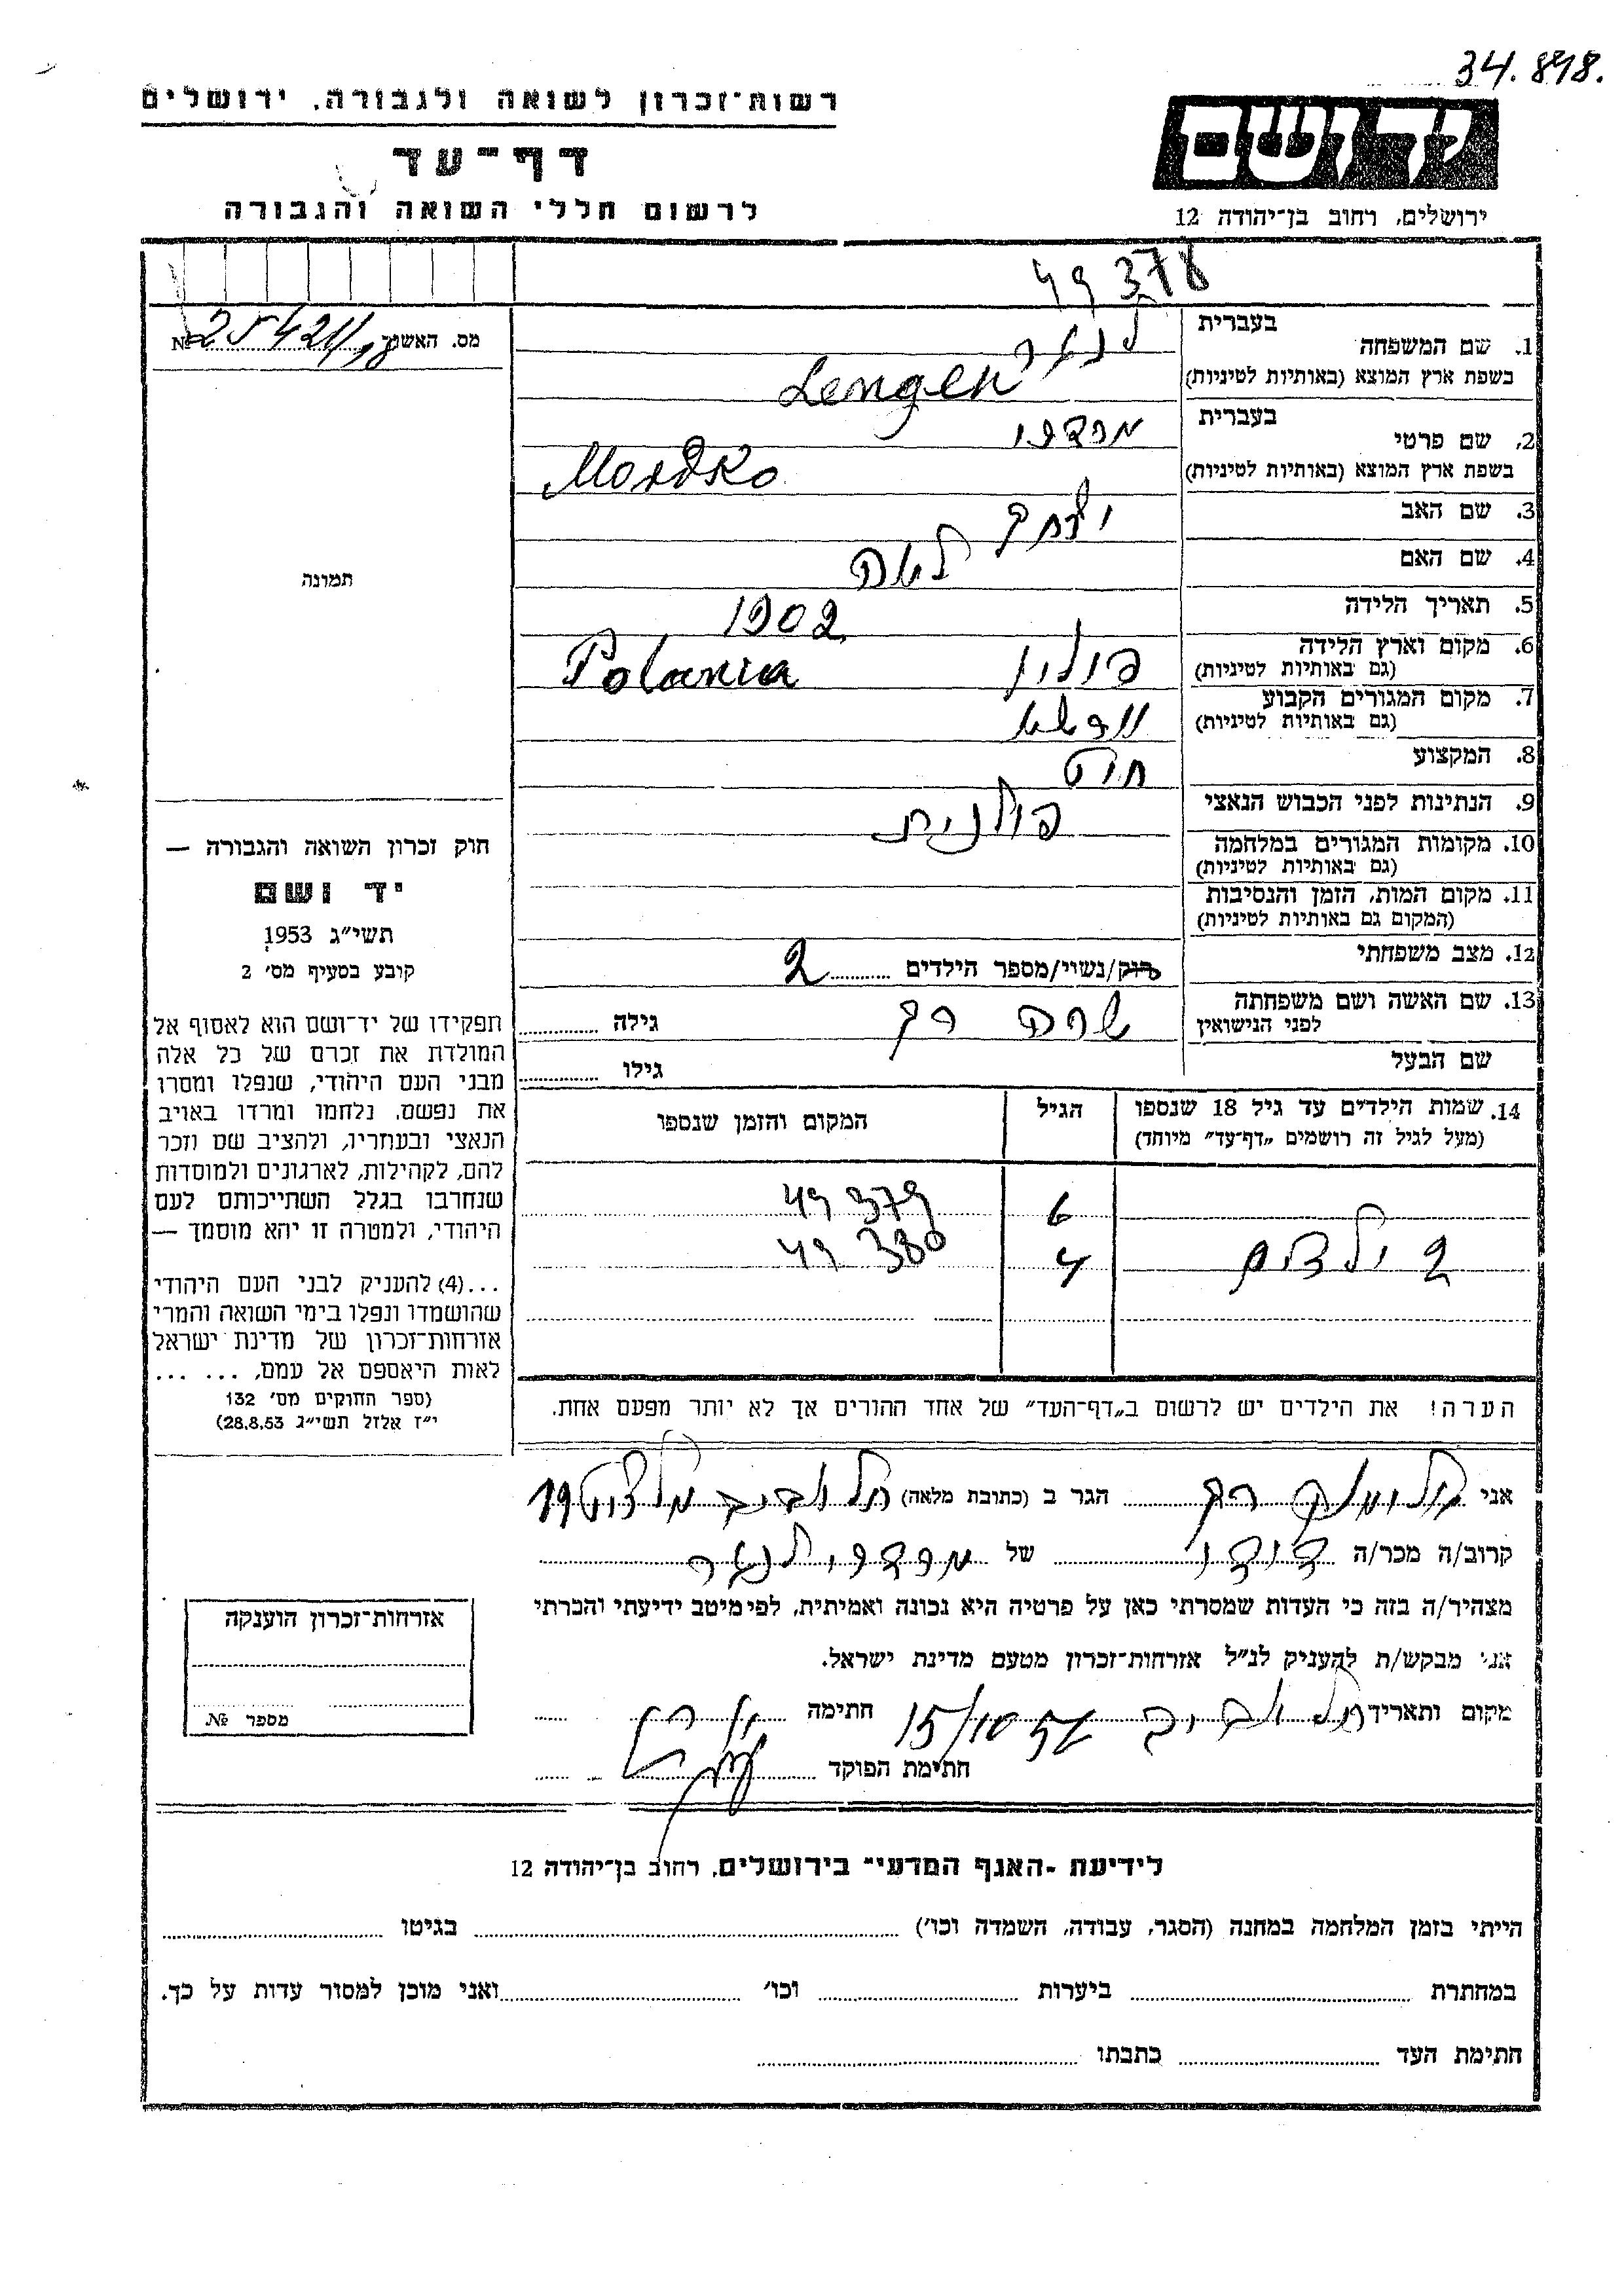 34.898.
רשות־זכרון לשואה ולגבורה, ירושלים
יד ושם
דף־עד
לרשום חללי השואה והגבורה
ירושלים, רחוב בן־יהודה 12
49 378
מס. האשנב № 25421/18
תמונה
בעברית לנגר
1. שם המשפחה
בשפת ארץ המוצא (באותיות לטיניות) Lenger
בעברית מרדכי
2. שם פרטי
בשפת ארץ המוצא (באותיות לטיניות) Mordko
3. שם האב יצחק
4. שם האם לאה
5. תאריך הלידה 1902
6. מקום וארץ הלידה פולין Polania
(גם באותיות לטיניות)
7. מקום המגורים הקבוע
(גם באותיות לטיניות)
8. המקצוע חייט
9. הנתינות לפני הכבוש הנאצי פולנית
10. מקומות המגורים במלחמה
(גם באותיות לטיניות)
11. מקום המות, הזמן והנסיבות
(המקום גם באותיות לטיניות)
12. מצב משפחתי רוק/נשוי/מספר הילדים 2
13. שם האשה ושם משפחתה שרה רק גילה
לפני הנישואין
שם הבעל גילו
14. שמות הילדים עד גיל 18 שנספו הגיל המקום והזמן שנספו
(מעל לגיל זה רושמים "דף־עד" מיוחד)
6 49 379
2 ילדים 4 49 380
הערה! את הילדים יש לרשום ב"דף־העד" של אחד ההורים אך לא יותר מפעם אחת.
חוק זכרון השואה והגבורה —
יד ושם
תשי"ג 1953
קובע בסעיף מס׳ 2
תפקידו של יד־ושם הוא לאסוף אל
המולדת את זכרם של כל אלה
מבני העם היהודי, שנפלו ומסרו
את נפשם, נלחמו ומרדו באויב
הנאצי ובעוזריו, ולהציב שם וזכר
להם, לקהילות, לארגונים ולמוסדות
שנחרבו בגלל השתייכותם לעם
היהודי, ולמטרה זו יהא מוסמך —
...(4) להעניק לבני העם היהודי
שהושמדו ונפלו בימי השואה והמרי
אזרחות־זכרון של מדינת ישראל
לאות היאספם אל עמם, ... ...
(ספר החוקים מס׳ 132
י"ז אלול תשי"ג 28.8.53)
אני רק הגר ב (כתובת מלאה) תל אביב 19
קרוב/ה מכר/ה דודו של מרדכי לנגר
מצהיר/ה בזה כי העדות שמסרתי כאן על פרטיה היא נכונה ואמיתית, לפי מיטב ידיעתי והכרתי
אני מבקש/ת להעניק לנ"ל אזרחות־זכרון מטעם מדינת ישראל.
מקום ותאריך תל אביב 15/10 54 חתימה
חתימת הפוקד
אזרחות־זכרון הוענקה
מספר №
לידיעת ־האגף המדעי־ בירושלים, רחוב בן־יהודה 12
הייתי בזמן המלחמה במחנה (הסגר, עבודה, השמדה וכו׳) בגיטו
במחתרת ביערות וכו׳ ואני מוכן למסור עדות על כך.
חתימת העד כתבתו